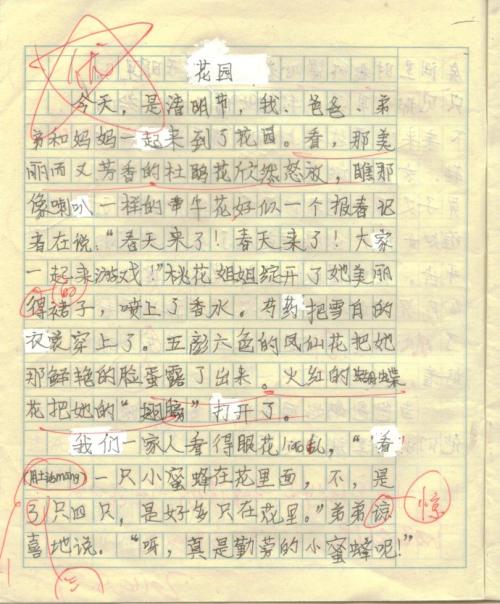 优
花园
今天，是清明节，我、爸爸、弟
弟和妈妈一起来到了花园。看，那美
丽而又芳香的杜鹃花欣然怒放，瞧那
像喇叭一样的牵牛花好似一个报春记
者在说：“春天来了！春天来了！大家
一起来游戏！”桃花姐姐绽开了她美丽
得裙子，喷上了香水。芍药把雪白的
衣裳穿上了。五彩六色的凤仙花把她
那鲜艳的脸蛋露了出来。火红的蝴蝶
花把她的“翅膀”打开了。
我们一家人看得眼花 乱，“看
一只小蜜蜂在花里面，不，是
只四只，是好多只在花里。”弟弟谅 惊
喜地说。“呀，真是勤劳的小蜜蜂呢！”
三